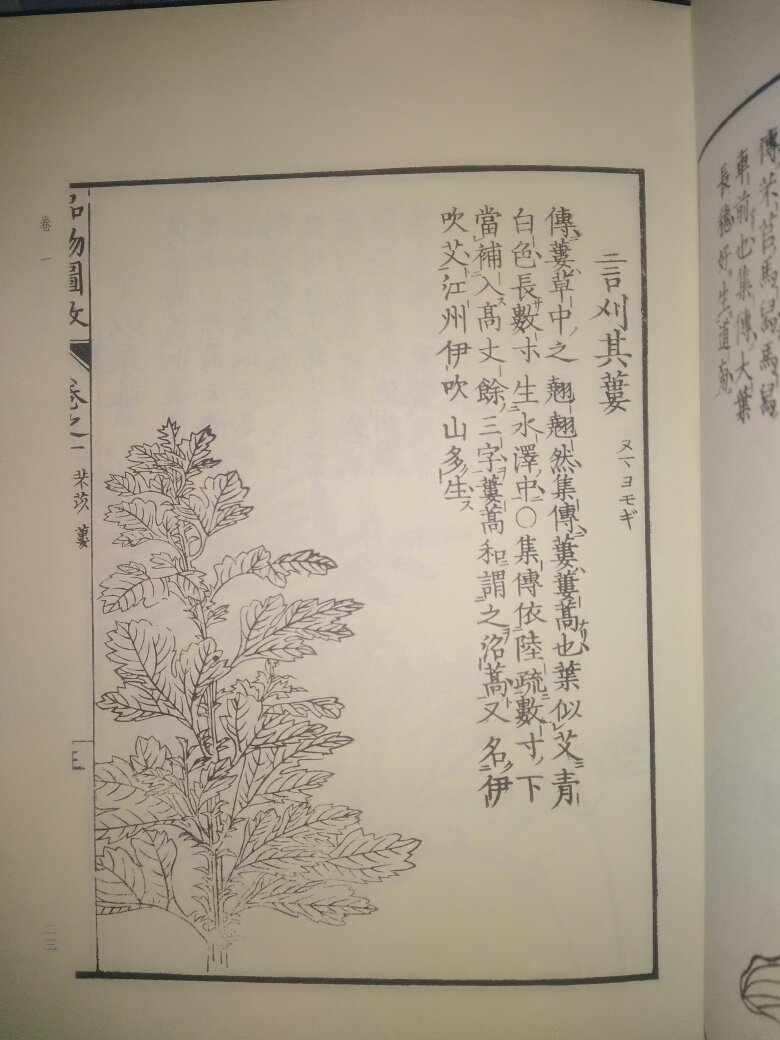 傳芣苢馬舄馬舄
車前也集傳大葉
長穗好生道旁
言刈其蔞
ヌマヨモギ
傳蔞草中之翹翹然集傳蔞蔞蒿也葉似艾青
白色長數寸生水澤中○集傳依陸疏數寸下
當補入高丈餘三字蔞蒿和謂之沼蒿又名伊
吹艾江州伊吹山多生
品物圖攷
卷之一
芣苡 蔞
三
卷一
二三